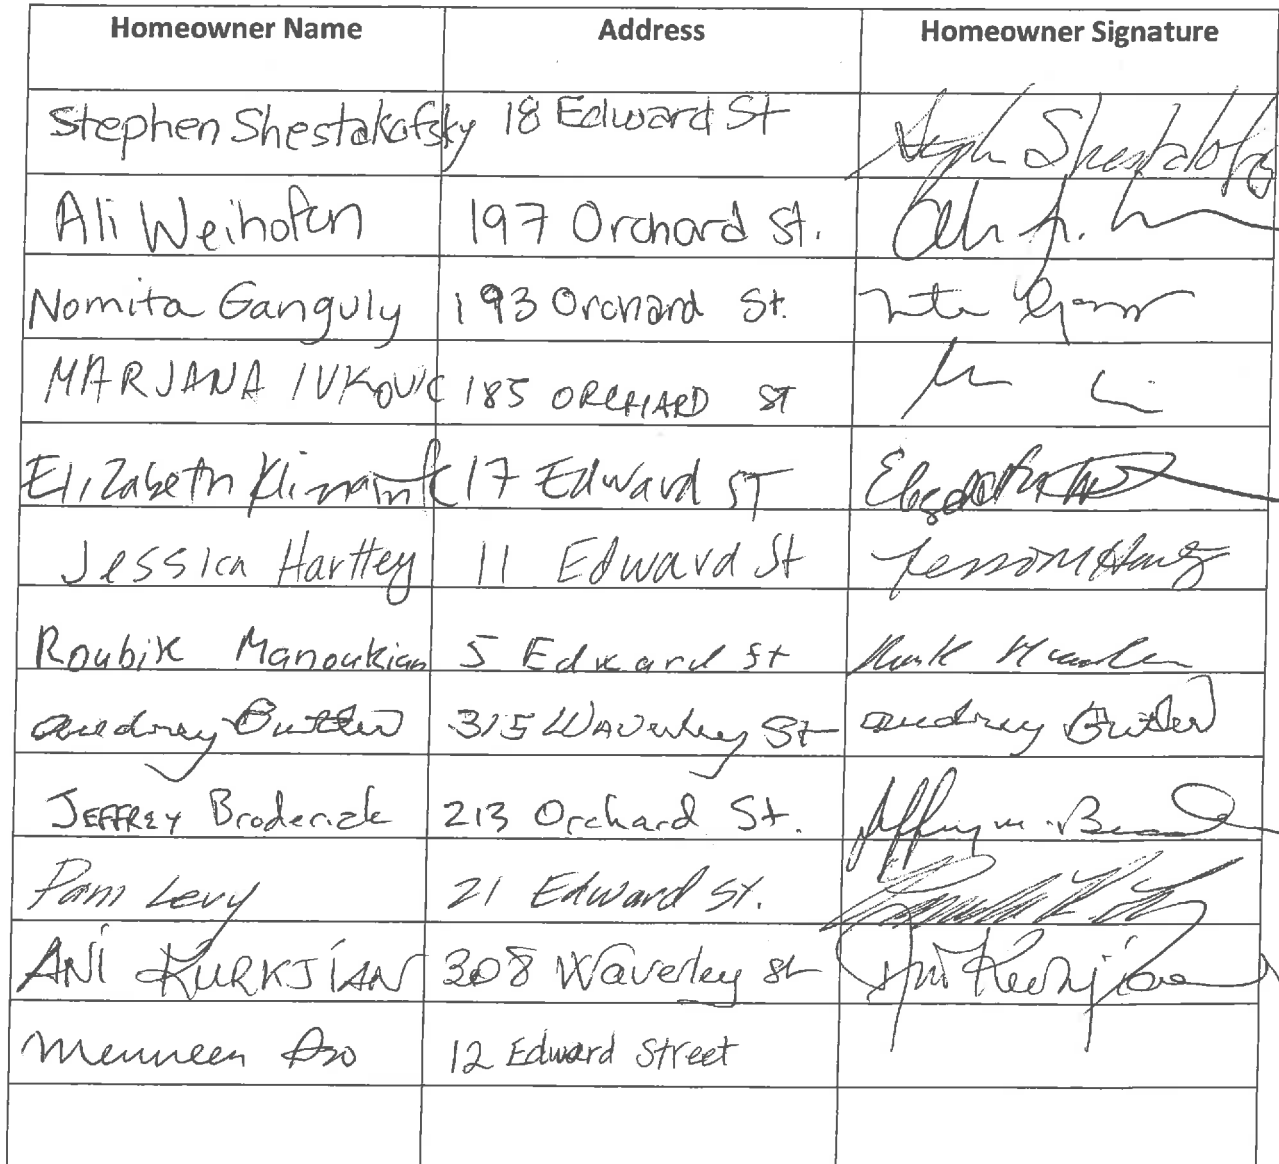 Homeowner Name Address Homeowner Signature
Stephen Shestakofsky 18 Edward St Stephen Shestakofsky
Ali Weihofen 197 Orchard St.
Nomita Ganguly 193 Orchard St.
MARJANA IVKOVIC 185 ORCHARD ST
Elizabeth 17 Edward ST Elizabeth
Jessica Hartley 11 Edward St
Roubik Manoukian 5 Edward St
Audrey Butler 315 Waverley St Audrey Butler
JEFFREY Broderick 213 Orchard St.
Pam Levy 21 Edward St.
ANI KURKJIAN 308 Waverley St Ani Kurkjian
12 Edward Street